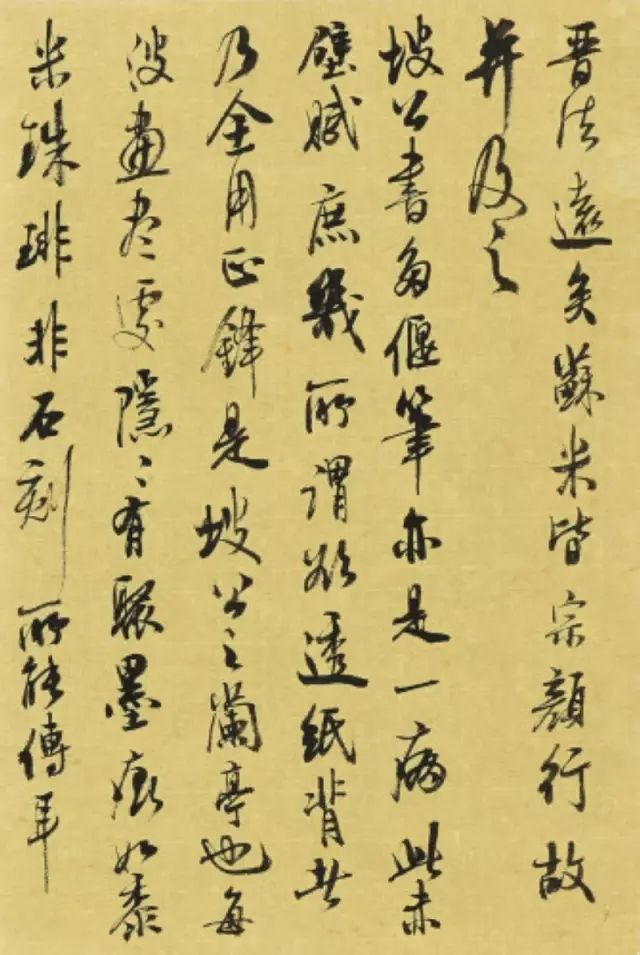 晋法遠矣蘇米皆宗顏行故
并及之
坡公書多偃筆亦是一病此赤
壁賦庶幾所謂欲透紙背者
乃全用正鋒是坡公之蘭亭也每
波畫尽處隱〻有聚墨痕如黍
米珠琲非石刻所能傳耳